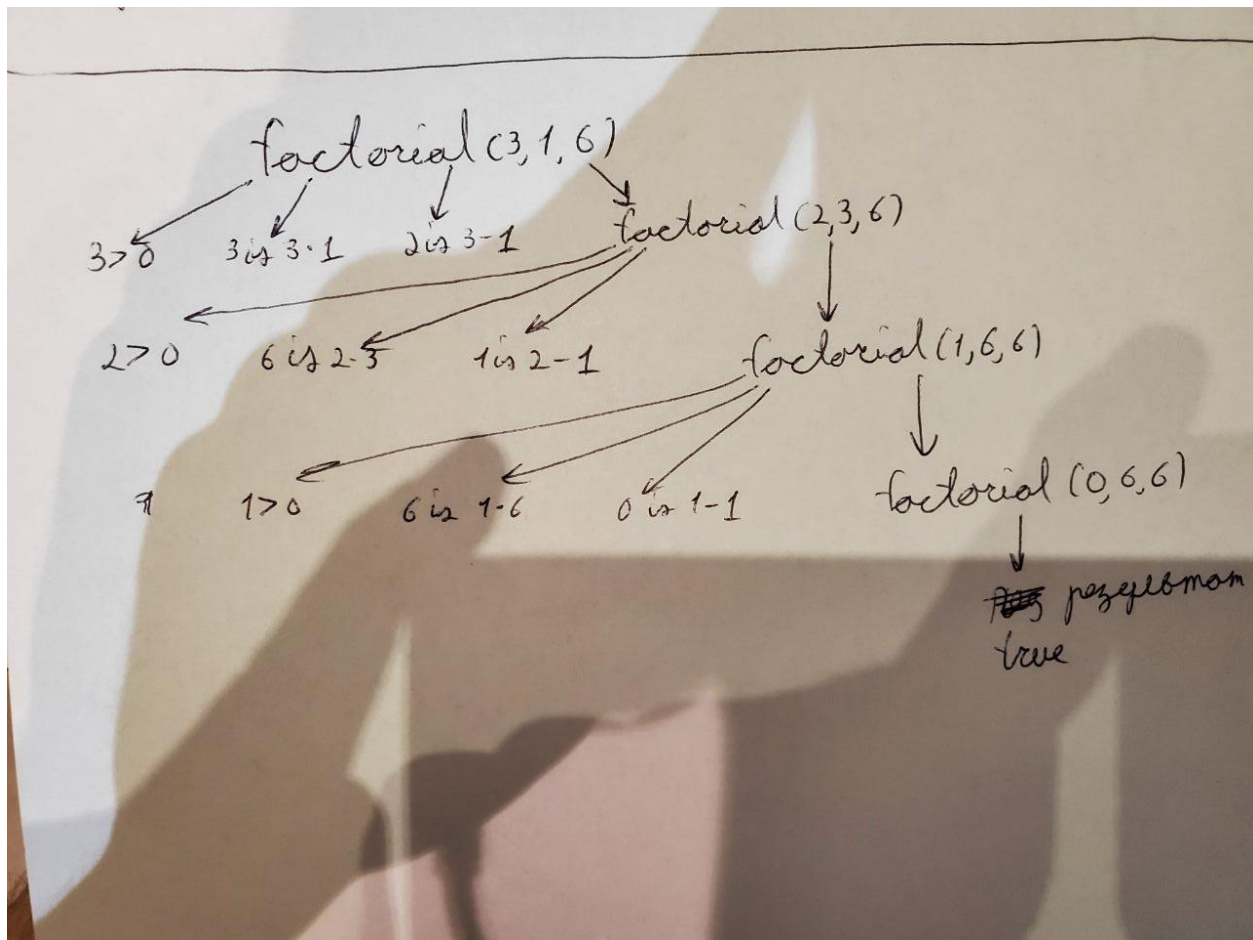 factorial (3, 1, 6)
3>0 3 is 3·1 2 is 3-1 factorial (2, 3, 6)
2>0 6 is 2·3 1 is 2-1 factorial (1, 6, 6)
1>0 6 is 1·6 0 is 1-1 factorial (0, 6, 6)
результат
true